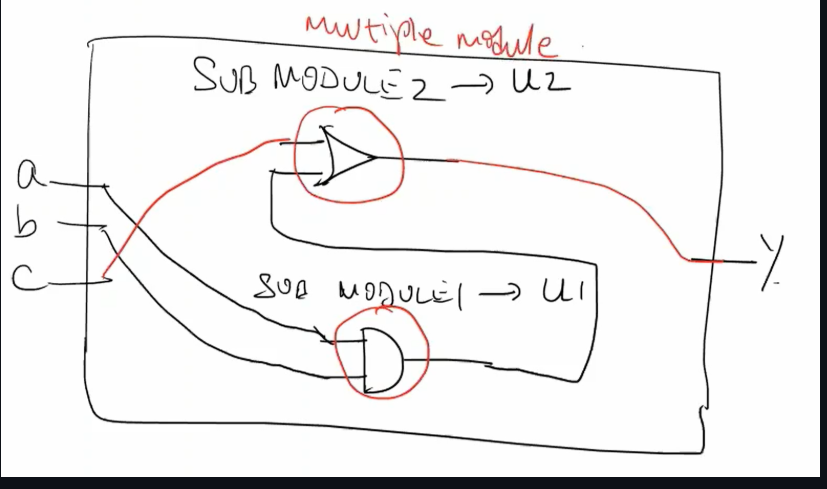 multiple module
SUB MODULE2 → U2
a
b
c
y
SUB MODULE1 → U1